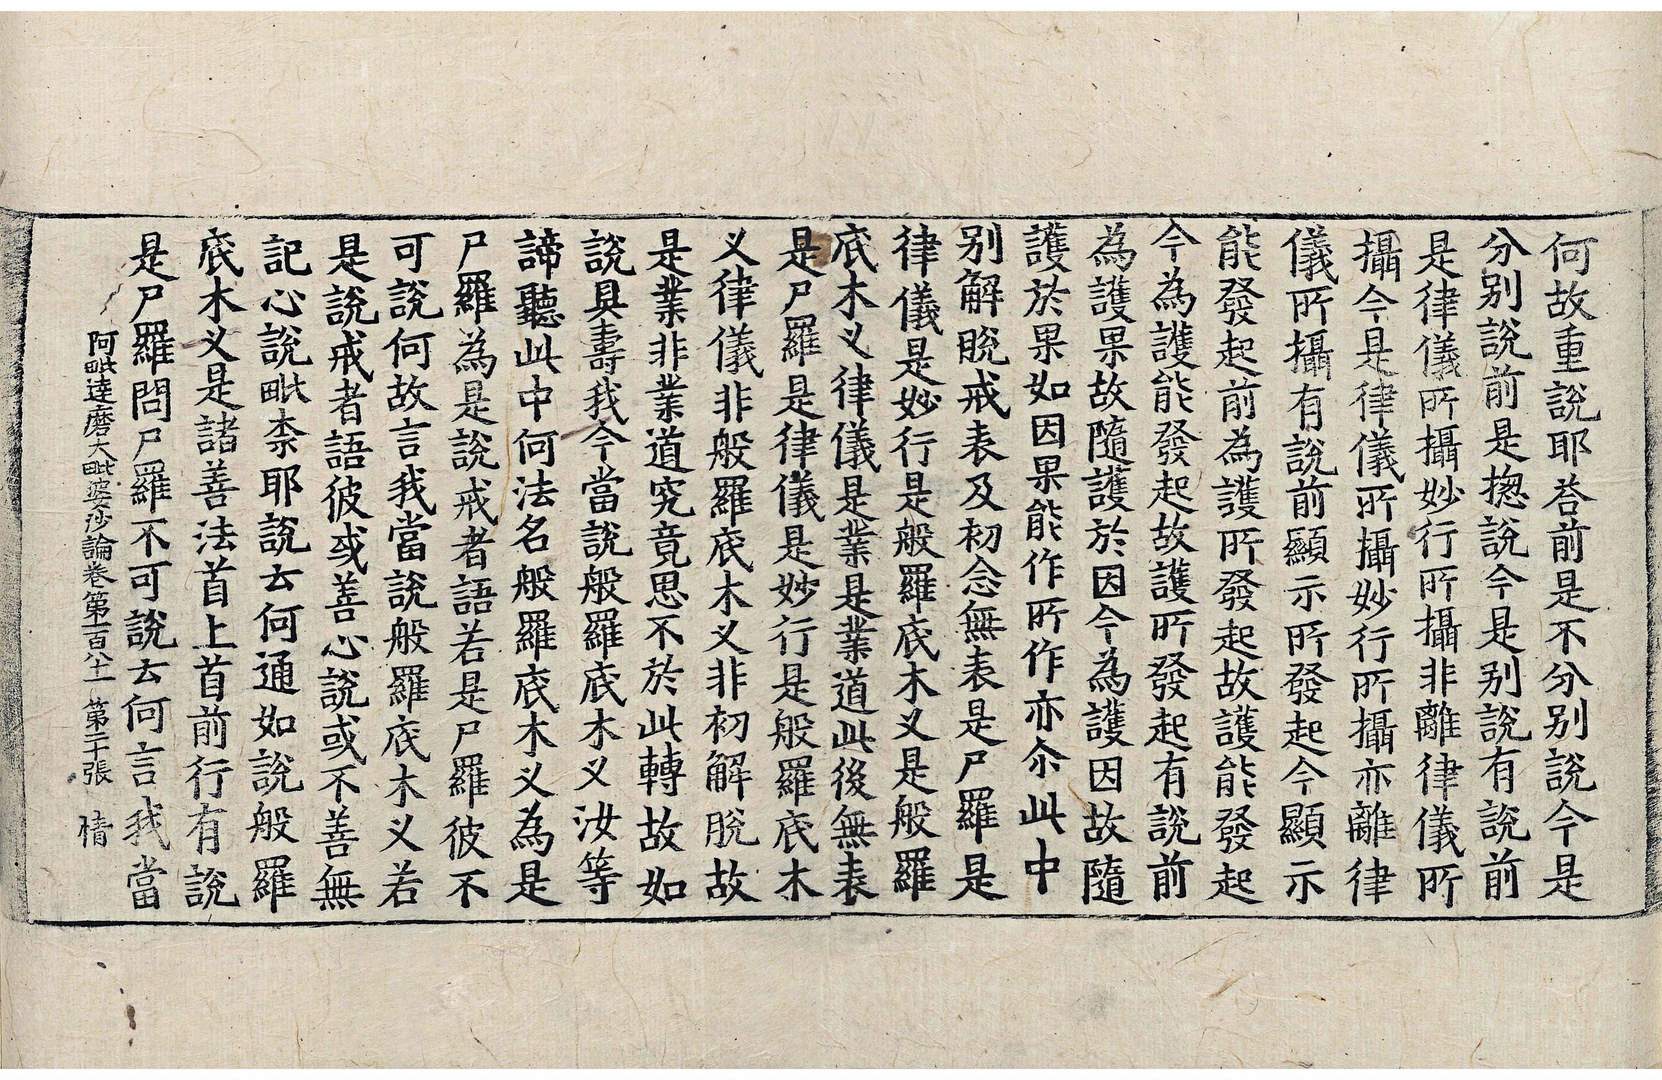 何故重說耶荅前是不分别說今是
分别說前是揔說今是别說有說前
是律儀所攝妙行所攝非離律儀所
攝今是律儀所攝妙行所攝亦離律
儀所攝有說前顯示所發起今顯示
能發起前為護所發起故護能發起
今為護能發起故護所發起有說前
為護果故隨護於因今為護因故隨
護於果如因果能作所作亦尒此中
别解脫戒表及初念無表是尸羅是
律儀是妙行是般羅底木义是般羅
底木义律儀是業是業道此後無表
是尸羅是律儀是妙行是般羅底木
义律儀非般羅底木义非初解脫故
是業非業道究竟思不於此轉故如
說具壽我今當說般羅底木义汝等
諦聽此中何法名般羅底木义為是
尸羅為是說戒者語若是尸羅彼不
可說何故言我當說般羅底木义若
是說戒者語彼或善心說或不善無
記心說毗柰耶說去何通如說般羅
底木义是諸善法首上首前行有說
是尸羅問尸羅不可說去何言我當
阿毗達磨大毗婆沙論卷第一百八十一 第二十張 情